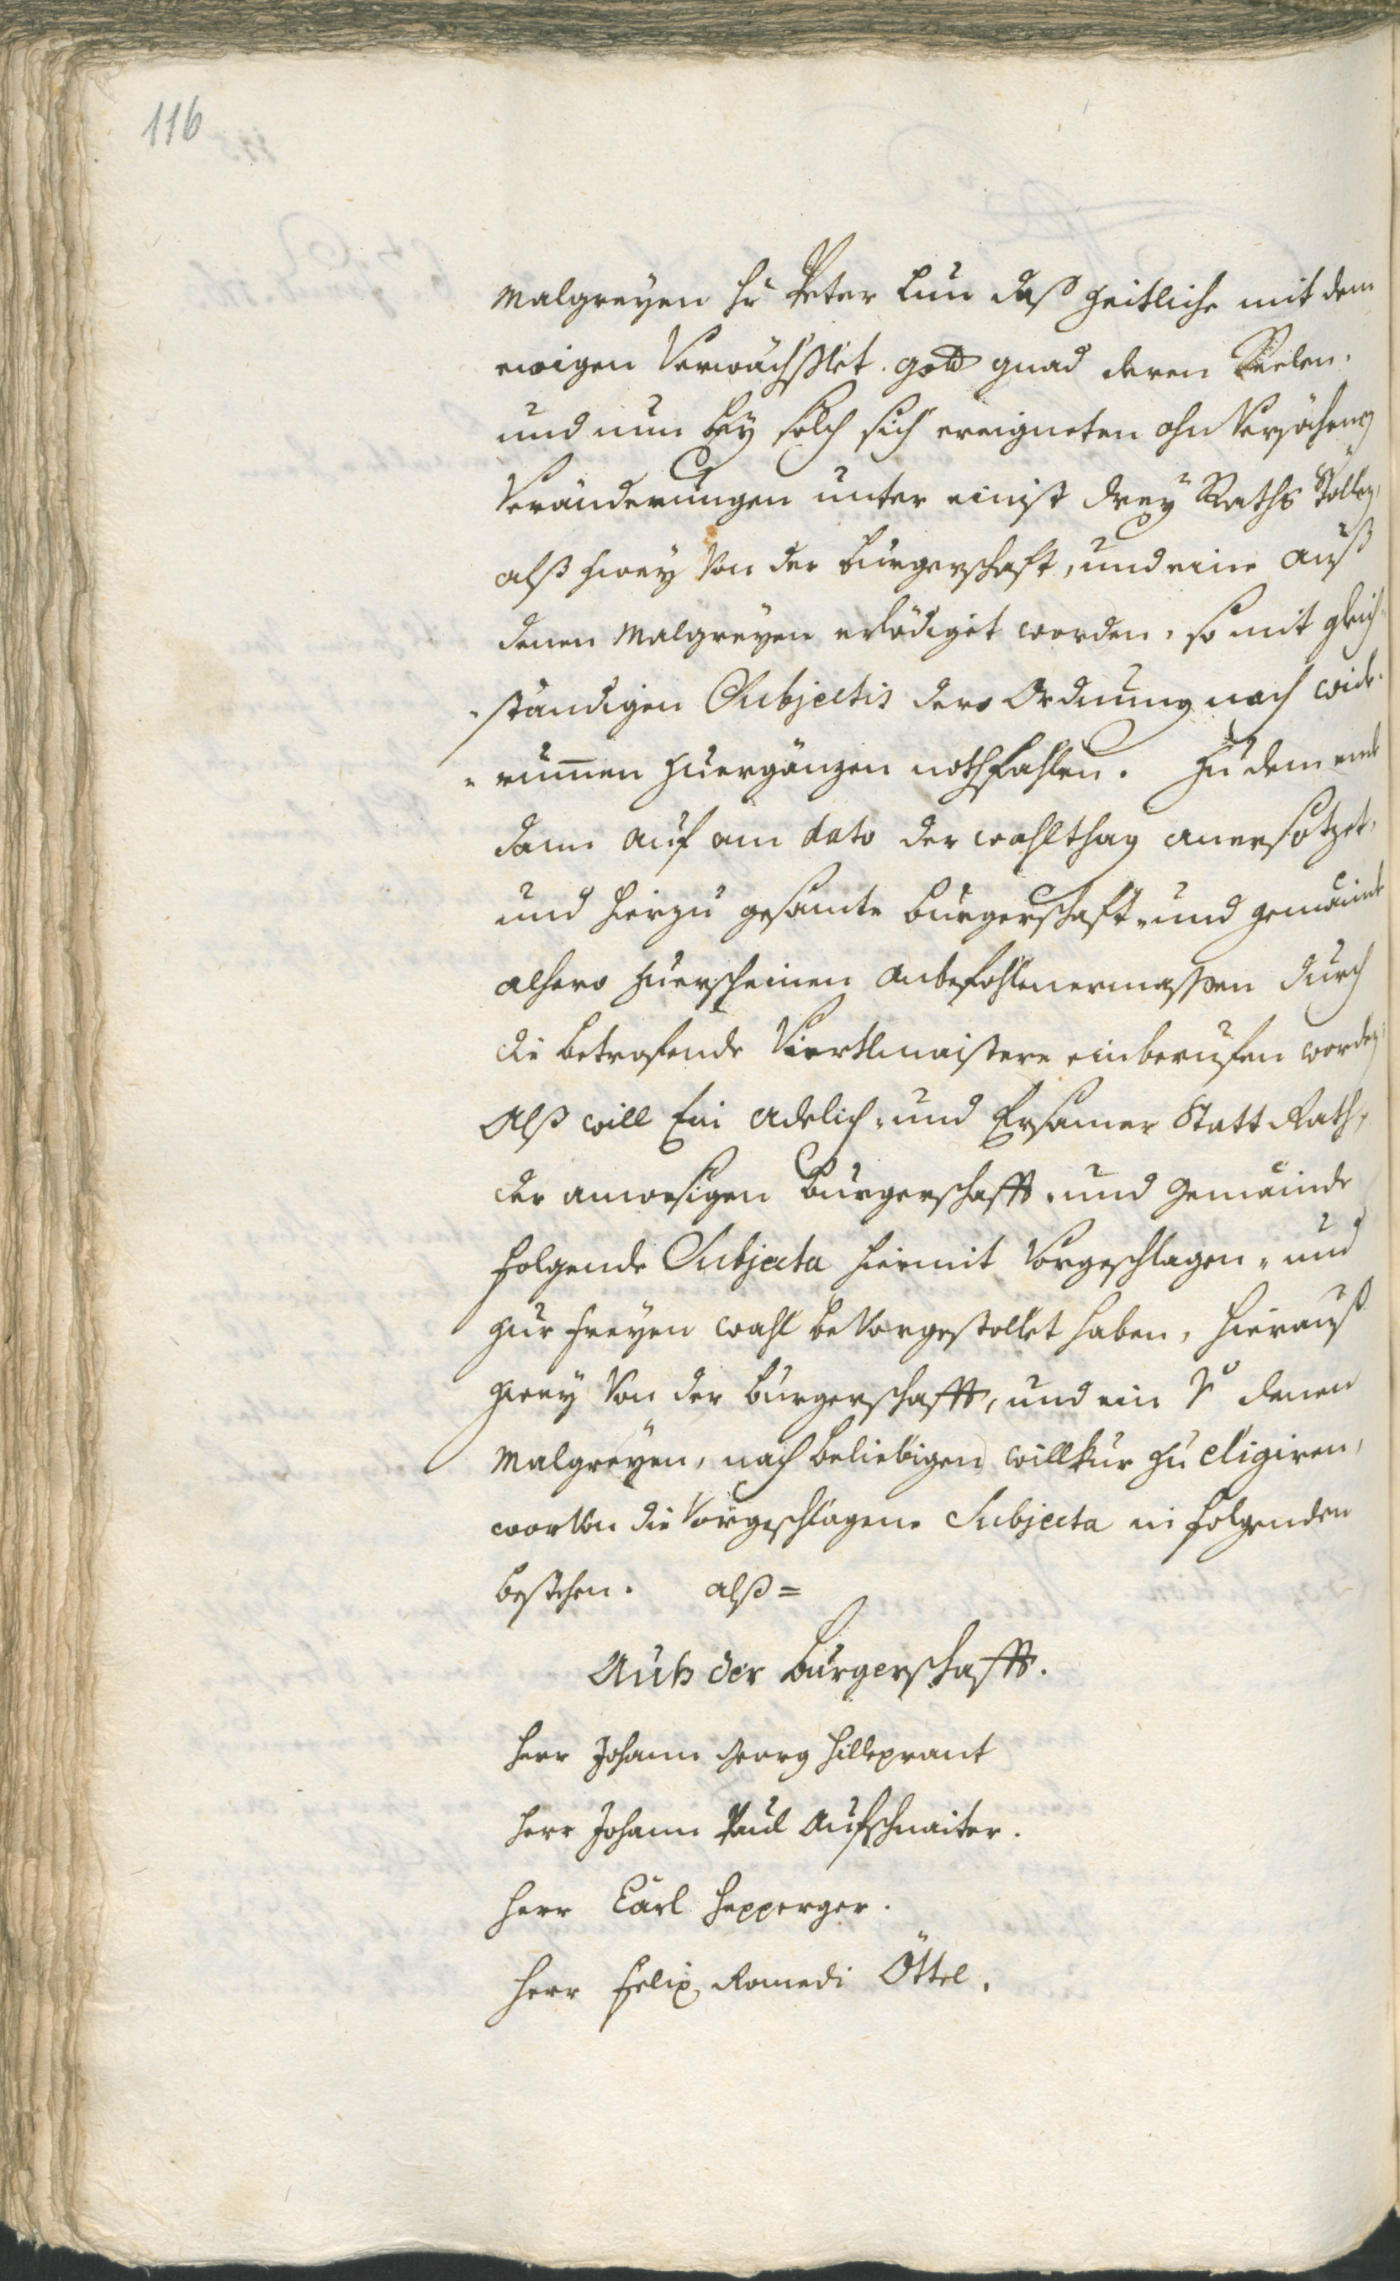 116
Malgreyen Hr Peter Lun daß Zeitliche mit dem
ewigen Verwächßlet. gott gnad deren Seelen.
und nun bey solch sich ereigneten ohn Versächenen
Veränderungen unter einist drey Raths Stöllen,
alß zwey Von der burgerschaft, und eine auß
denen Malgreyen erlödiget worden, so mit gleich-
-ständigen Subjectis dero Ordnung nach wide-
-rumen zuergänzen nothfahlen. Zu dem ende
dann auf am dato der wahlthag anersötzet,
und hierzu gesamte burgerschaft- und gemainde
alhero zuerscheinen anbefohlnermassen durch
die betrefende Viertlmaistere einberufen worden
Alß will Ein Adelich- und Ersamer Statt Rath,
der anwesigen burgerschafft- und gemainde
folgende Subjecta hiermit Vorgeschlagen- und
zur freyen wahl beVorgestöllet haben, hierauß
zwey Von der burgerschafft, und ein Vo denen
Malgreyen, nach beliebigen willkur zu eligiren,
worVon die Vorgeschlagene Subjecta in folgenden
bestehen. alß=
Auß der burgerschafft.
Herr Johann Georg Hilleprant
Herr Johann Paul Aufschnaiter.
Herr Carl Hepperger.
Herr Felix Romedi Öttel.